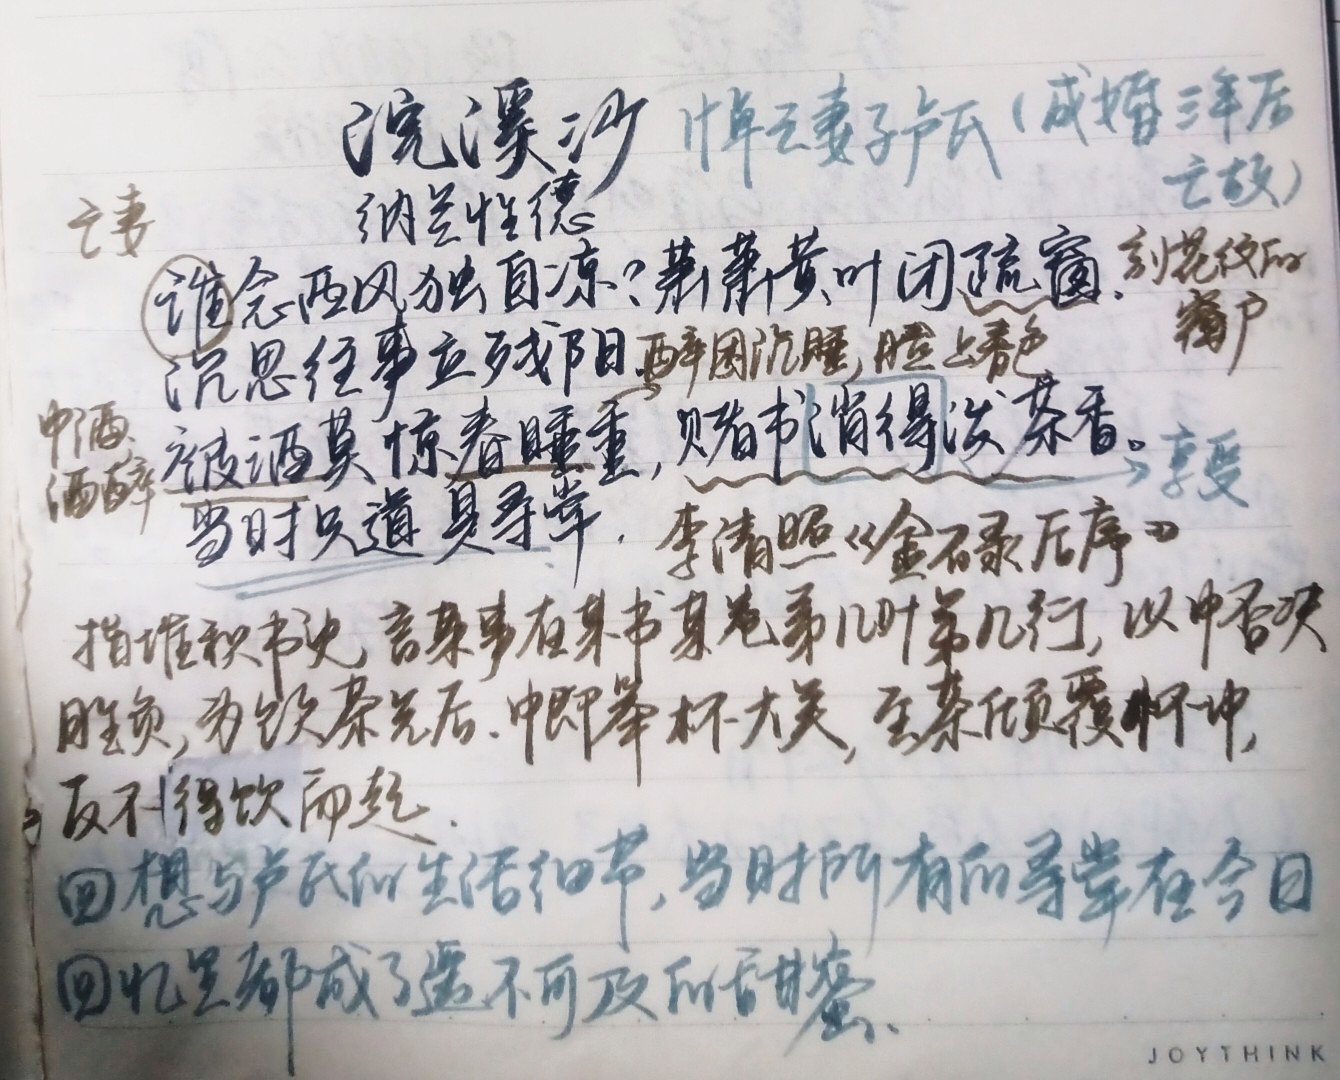 浣溪沙 悼亡妻子卢氏（成婚三年后
亡故）
纳兰性德
亡妻
谁念西风独自凉？萧萧黄叶闭疏窗. 刻花纹的
窗户
沉思往事立残阳. 醉困沉睡，脸上春色
中酒、
酒醉
被酒莫惊春睡重，赌书消得泼茶香。 享受
当时只道是寻常.
李清照《金石录后序》
指堆积书史，言某事在某书某卷第几叶第几行，以中否决
胜负，为饮茶先后.中即举杯大笑，至茶倾覆怀中，
反不得饮而起.
回想与卢氏的生活细节，当时所有的寻常在今日
回忆里都成了遥不可及的甜蜜.
JOYTHINK